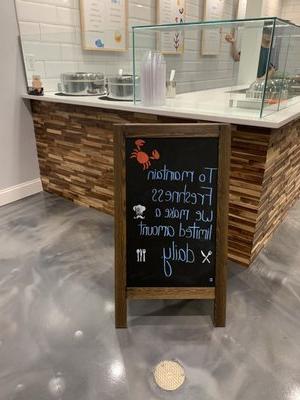 To maintain
Freshness
We make a
limited amount
daily